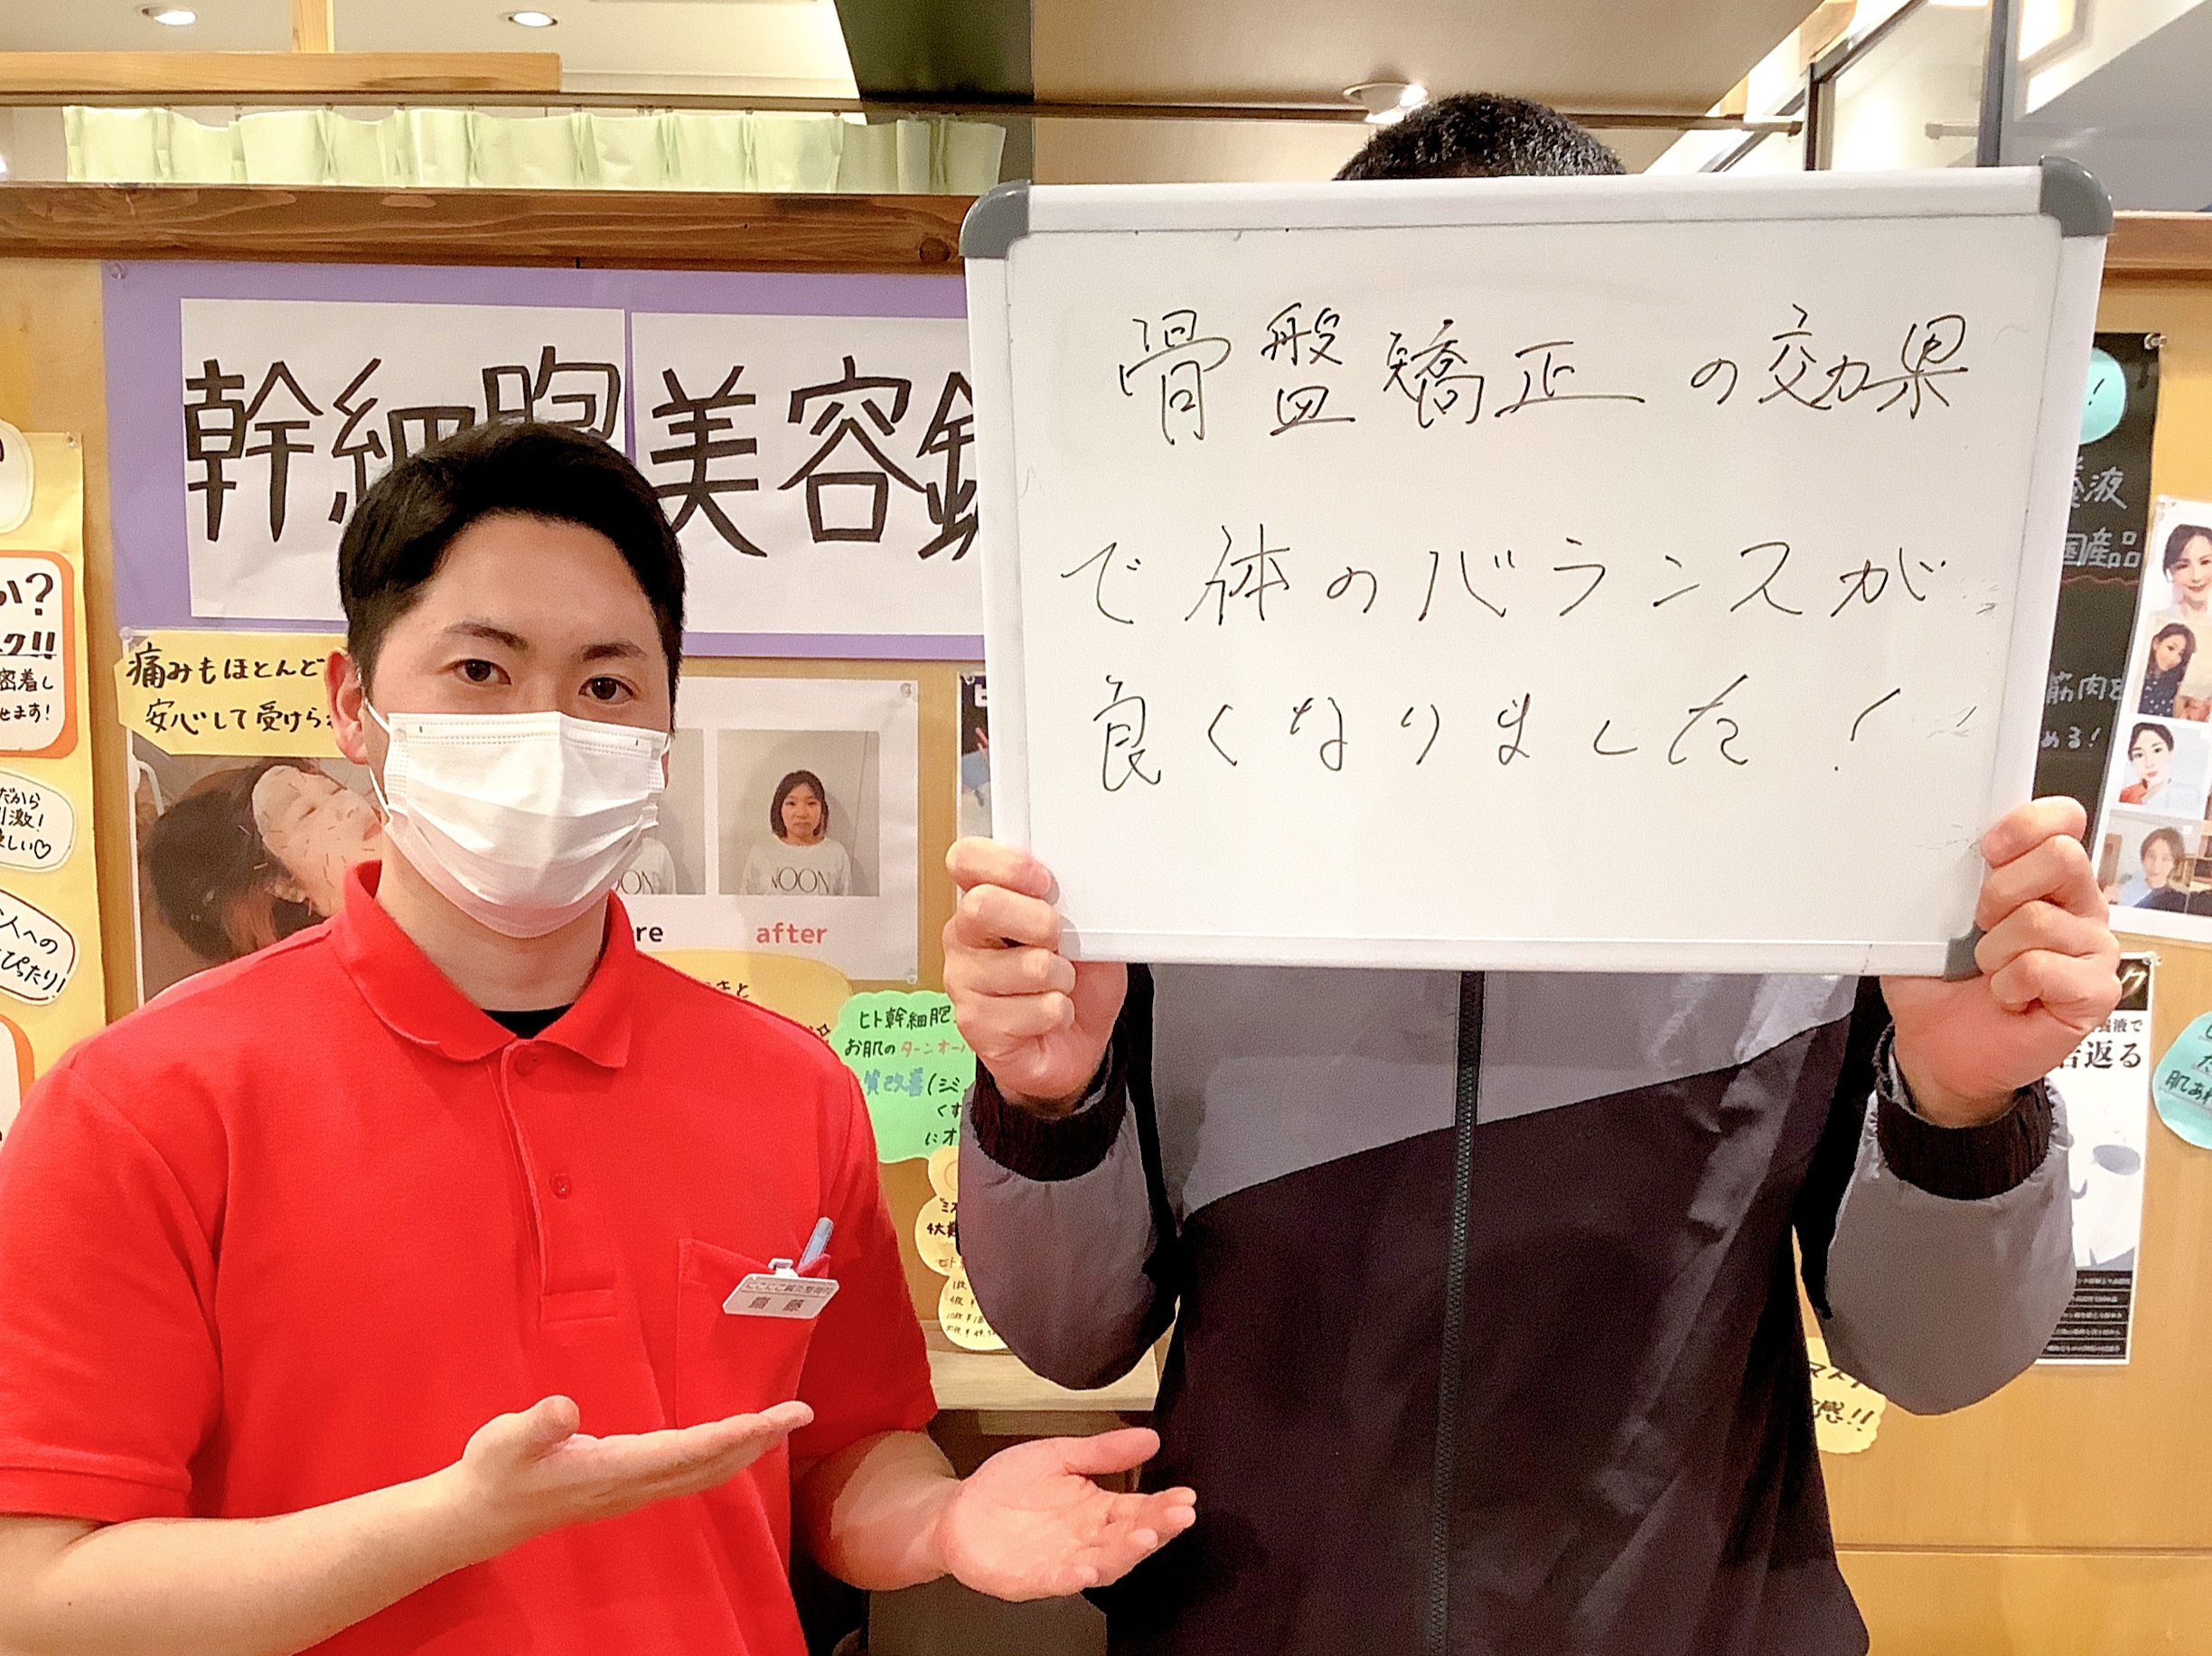 骨盤矯正の効果
で体のバランスが
良くなりました!
幹細胞美容
痛みもほとんど
安心して受けら
い?
ク!!
密着し
せます!
だから
激!
しい♡
人への
ぴったり!
NOON
after
ヒト幹細胞
お肌のターンオーバ
質改善
くす
にオ
齋藤
液
国産品
筋肉を
める!
液で
若返る
肌あれ
感!!